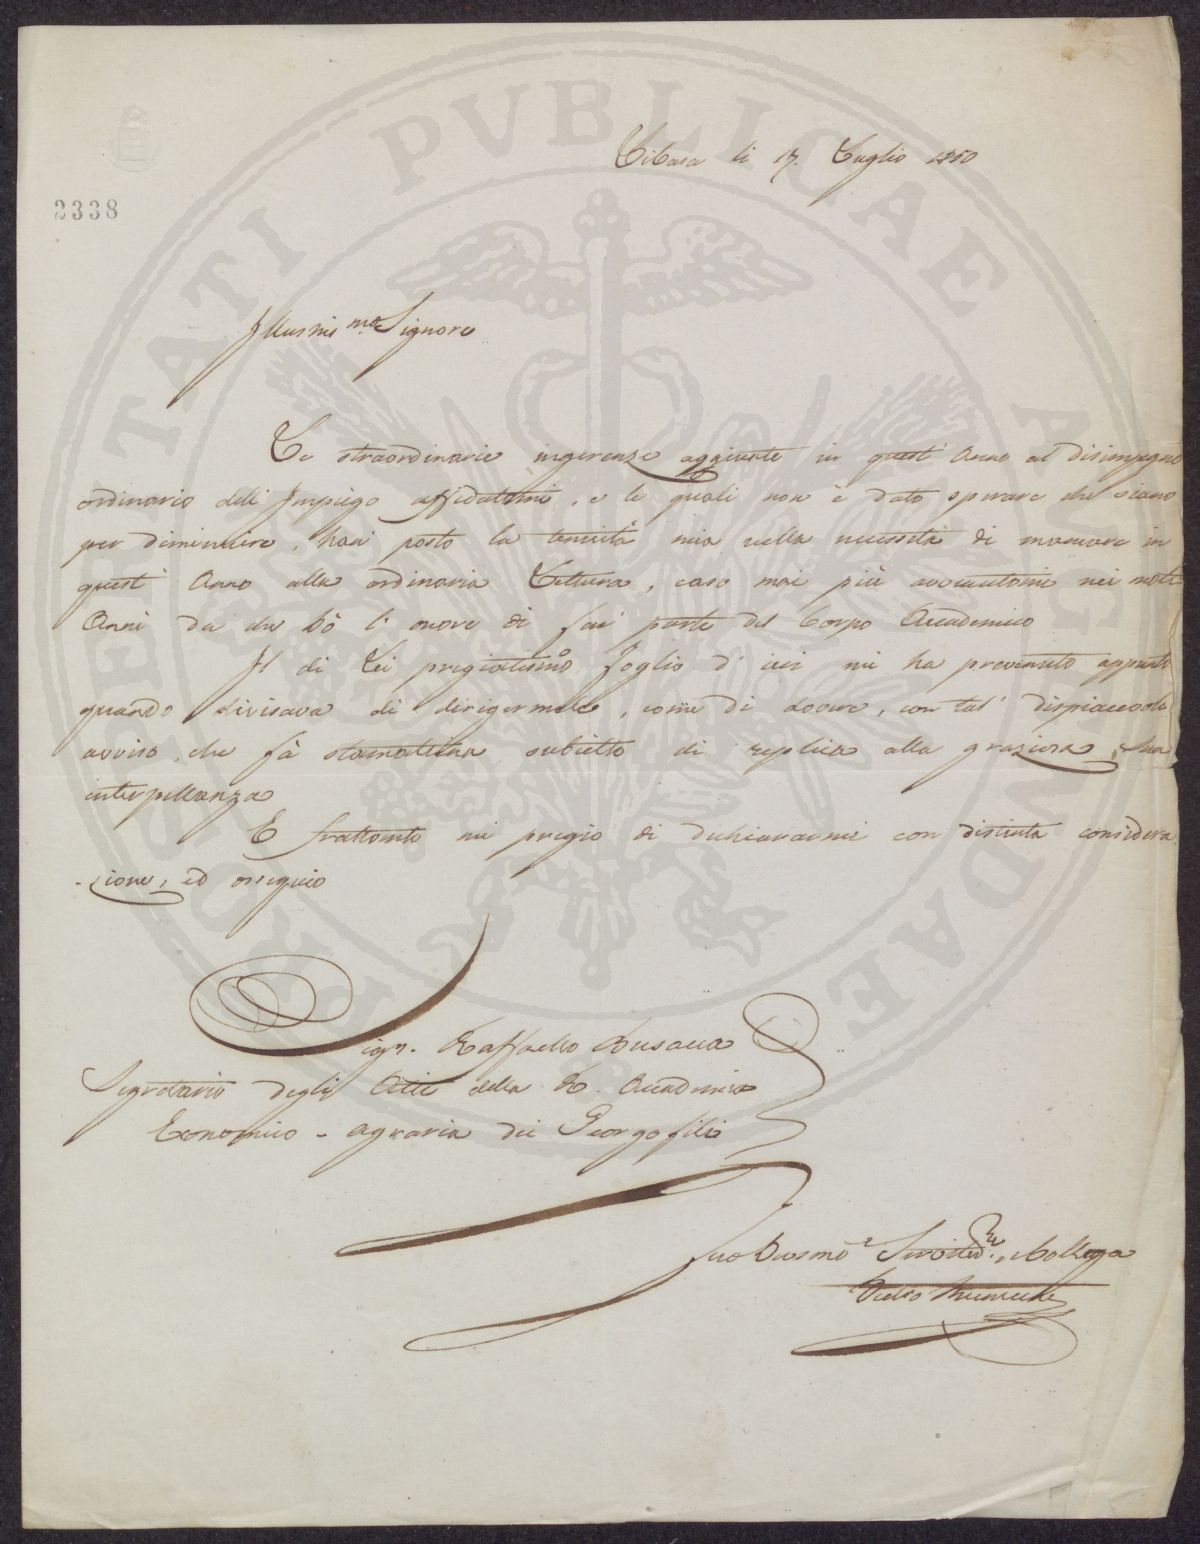 PROSPERITATI PUBLICAE AUGENDAE
2338
Di Casa li 17. Luglio 1850
Illustris.mo Signore
Le straordinarie ingerenze aggiunte in quest' Anno al disimpegno
ordinario dell' Impiego affidatomi, e le quali non è dato sperare che siano
per diminuire, han' posto la tenuità mia nella necessità di mancare in
quest' Anno alla ordinaria Lettura, caso mai più avvenutomi nei molti
Anni da che hò l' onore di far parte del Corpo Accademico
Il di Lei pregiatissimo foglio d' ieri mi ha prevenuto appunto
quando divisava di dirigermele, come di dovere, con tal' dispiacevole
avviso, che fà stamattina subietto di replica alla graziosa Sua
interpellanza
E frattanto mi pregio di dichiararmi con distinta considera
-zione, ed ossequio
Sign. Raffaello Busacca
Segretario degli Atti della R. Accademia
Economico - agraria dei Georgofili
Suo Devotmo Servitore, e Collega